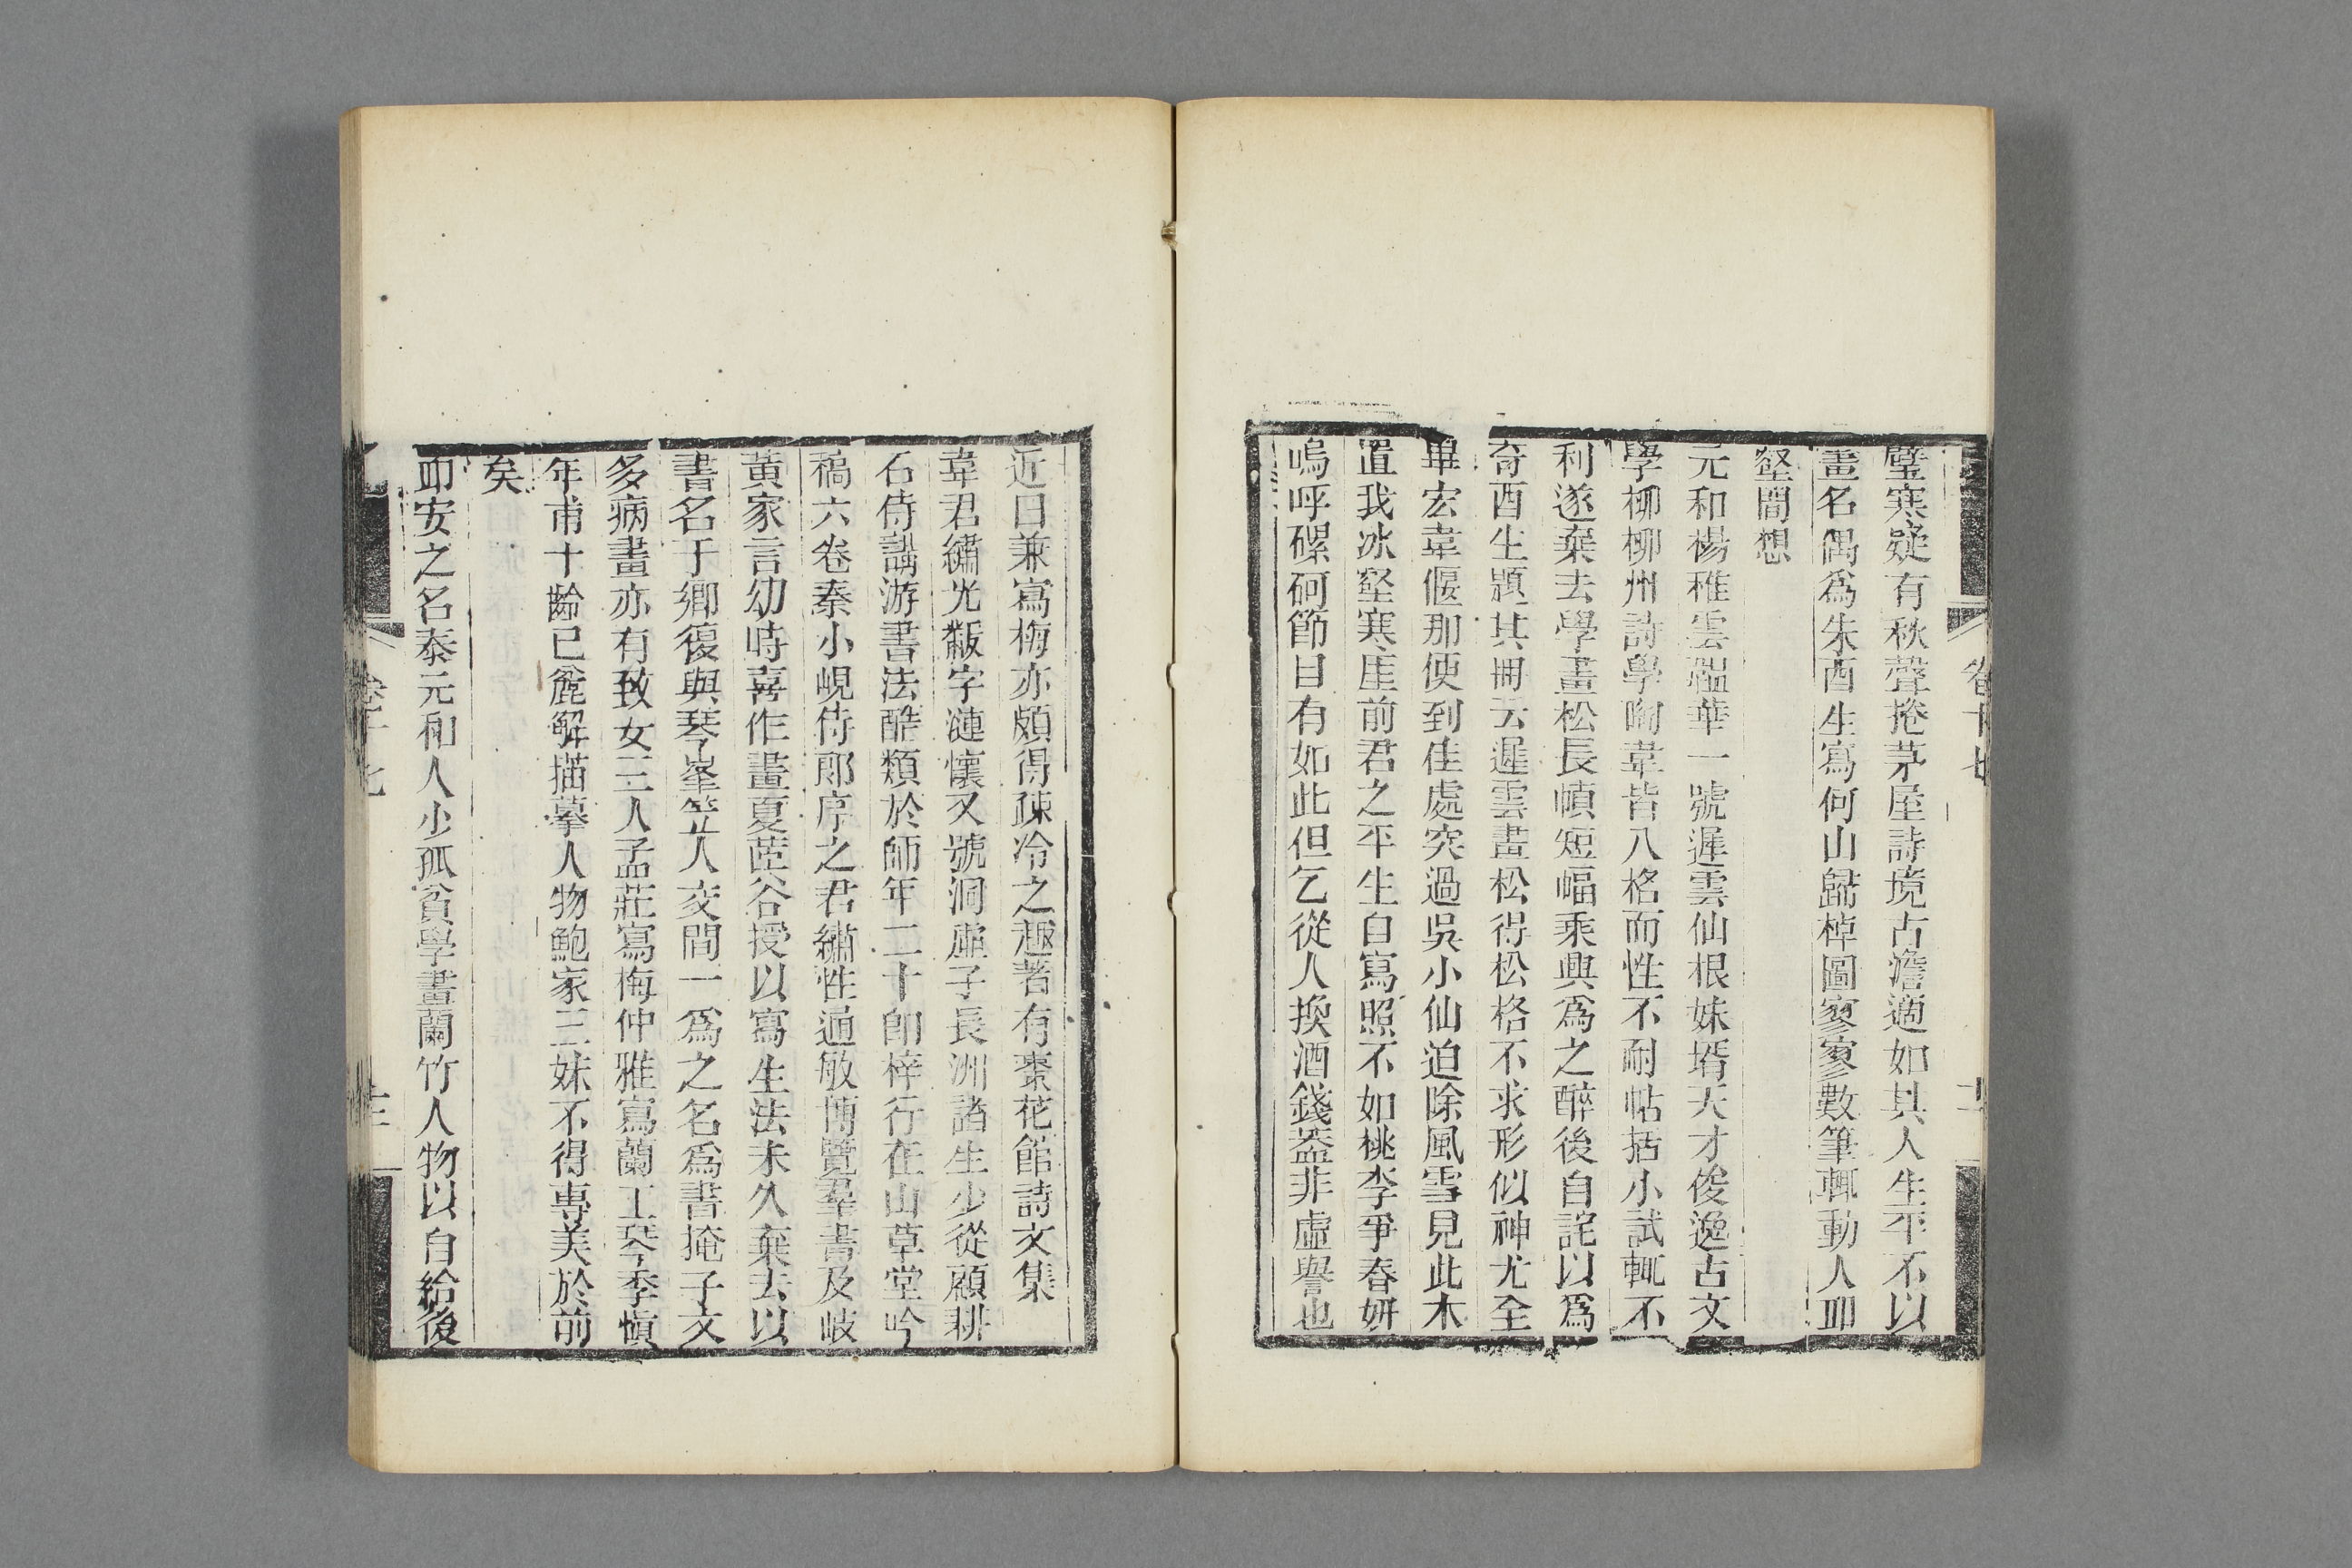 璧寒疑有秋聲捲茅屋詩境古澹適如其人生平不以
畫名偶爲朱酉生寫何山歸棹圖寥寥數筆輒動人丘
壑間想
元和楊稚雲韞華一號遲雲仙根妹壻天才俊逸古文
學柳柳州詩學陶韋皆入格而性不耐帖括小試輒不
利遂棄去學畫松長幀短幅乘興爲之醉後自詫以爲
奇酉生題其冊云遲雲畫松得松格不求形似神尤全
畢宏韋偃那便到佳處突過吳小仙迫除風雪見此木
置我冰壑寒厓前君之平生自寫照不如桃李爭春妍
嗚呼磥砢節目有如此但乞從人換酒錢葢非虛譽也
近日兼寫梅亦頗得疎冷之趣著有棗花館詩文集
韋君繡光黻字漣懷又號洞虛子長洲諸生少從顧耕
石侍講游書法酷類於師年二十卽梓行在山草堂吟
稿六卷秦小峴侍郎序之君繡性通敏博覽羣書及歧
黃家言幼時喜作畫夏茝谷授以寫生法未久棄去以
書名于鄉復與琴峯竺人交間一爲之名爲書掩子文
多病畫亦有致女三人孟莊寫梅仲雅寫蘭工琴季愼
年甫十齡已能解描摹人物鮑家三妹不得專美於前
矣
丘安之名泰元和人少孤貧學畫蘭竹人物以自給後
卷十七